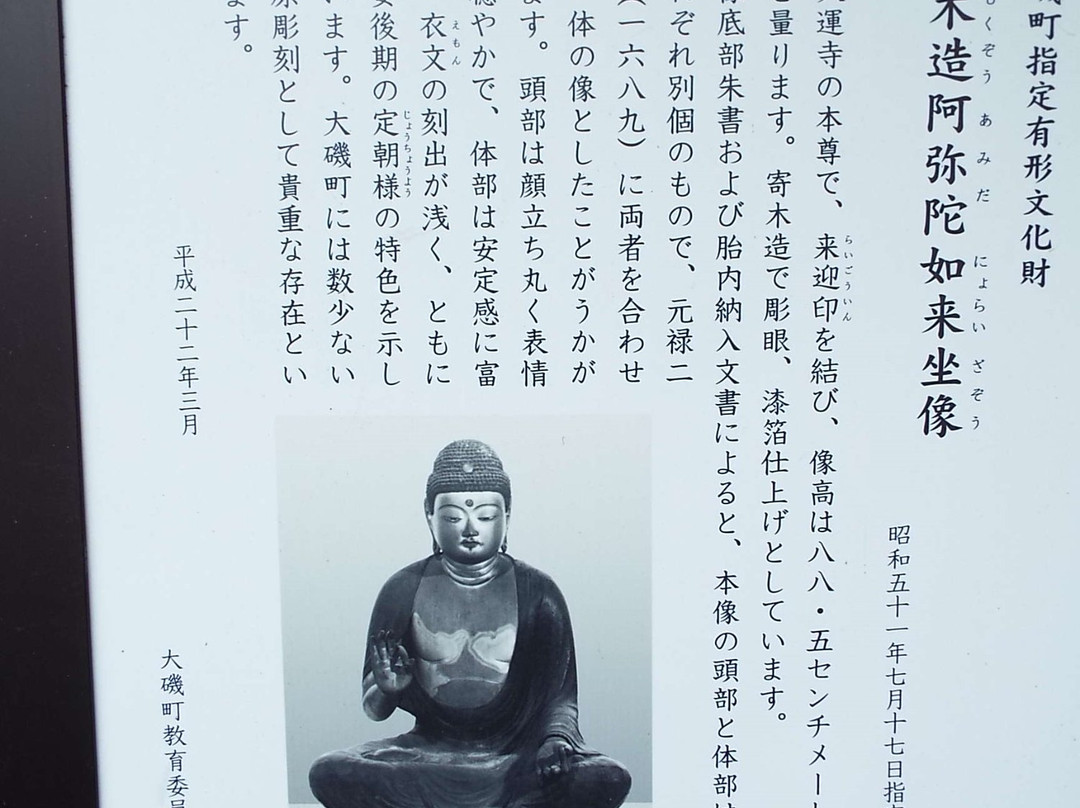 磯町指定有形文化財
木造阿弥陀如来坐像
くぞう あみだ にょらい ざぞう
昭和五十一年七月十七日指
運寺の本尊で、来迎印を結び、像高は八八・五センチメート
らいごういん
量ります。寄木造で彫眼、漆箔仕上げとしています。
底部朱書および胎内納入文書によると、本像の頭部と体部は
ぞれ別個のもので、元禄二
（一六八九）に両者を合わせ
体の像としたことがうかが
す。頭部は顔立ち丸く表情
穏やかで、体部は安定感に富
衣文の刻出が浅く、ともに
えもん
安後期の定朝様の特色を示し
じょうちょうよう
います。大磯町には数少ない
彫刻として貴重な存在とい
ます。
平成二十二年三月
大磯町教育委員